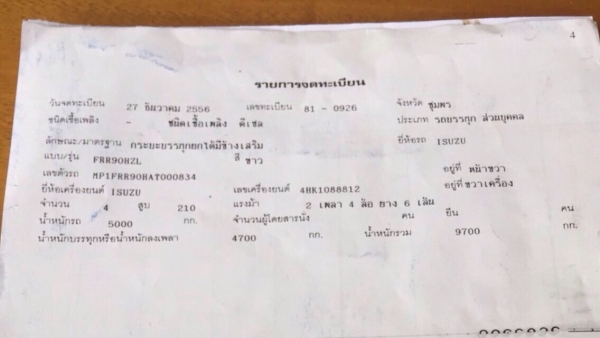 4
รายการจดทะเบียน
วันจดทะเบียน 27 ธันวาคม 2556 เลขทะเบียน 81 - 0926 จังหวัด ชุมพร
ชนิดเชื้อเพลิง - ชนิดเชื้อเพลิง ดีเซล ประเภท รถบรรทุก ส่วนบุคคล
ลักษณะ/มาตรฐาน กระบะบรรทุกยกได้มีข้างเสริม ยี่ห้อรถ ISUZU
แบบ/รุ่น FRR90HZL สี ขาว
เลขตัวรถ MP1FRR90HAT000834 อยู่ที่ หน้าขวา
ยี่ห้อเครื่องยนต์ ISUZU เลขเครื่องยนต์ 4HK1088812 อยู่ที่ ขวาเครื่อง
จำนวน 4 สูบ 210 แรงม้า 2 เพลา 4 ล้อ ยาง 6 เส้น
น้ำหนักรถ 5000 กก. จำนวนผู้โดยสารนั่ง คน ยืน คน
น้ำหนักบรรทุกหรือน้ำหนักลงเพลา 4700 กก. น้ำหนักรวม 9700 กก.